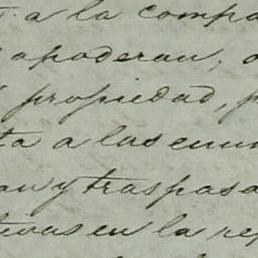 a la compa
apoderan,
propiedad, p
ta a las cuan
an y traspasa
tivas en la rep